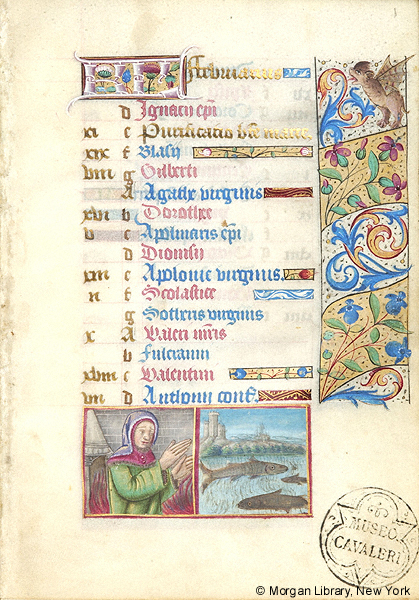 KL februarius
d Ignacii epi
xi e Purificatio bte marie
xix f Blasii
viii g Gilberti
A Agathe virginis
xvi b Dorothee
v c Apolinaris epi
d Dionisii
xiii e Apolonie virginis
ii f Scolastice
g Sotheris virginis
x A Valeri mris
b Fulcianni
xviii c Valentini
vii d Anthonii conf.
MUSEO
CAVALERI
© Morgan Library, New York